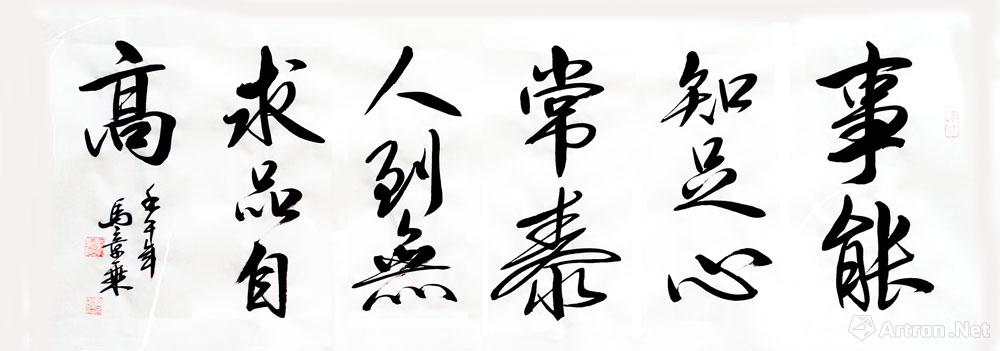 事能
知足心
常泰
人到無
求品自
高
壬午年
馬景乘
Artron.Net